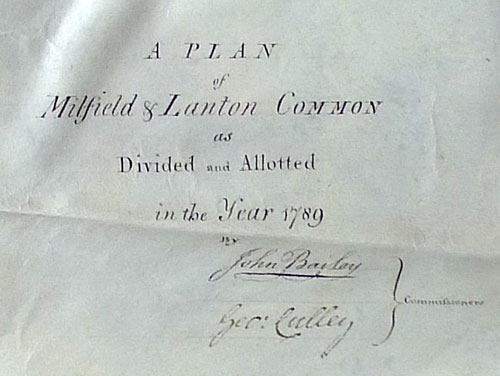 A PLAN
of
Milfield & Lanton COMMON
as
Divided and Allotted
in the Year 1789
BY
John Bailey
Geo: Culley
Commissioners